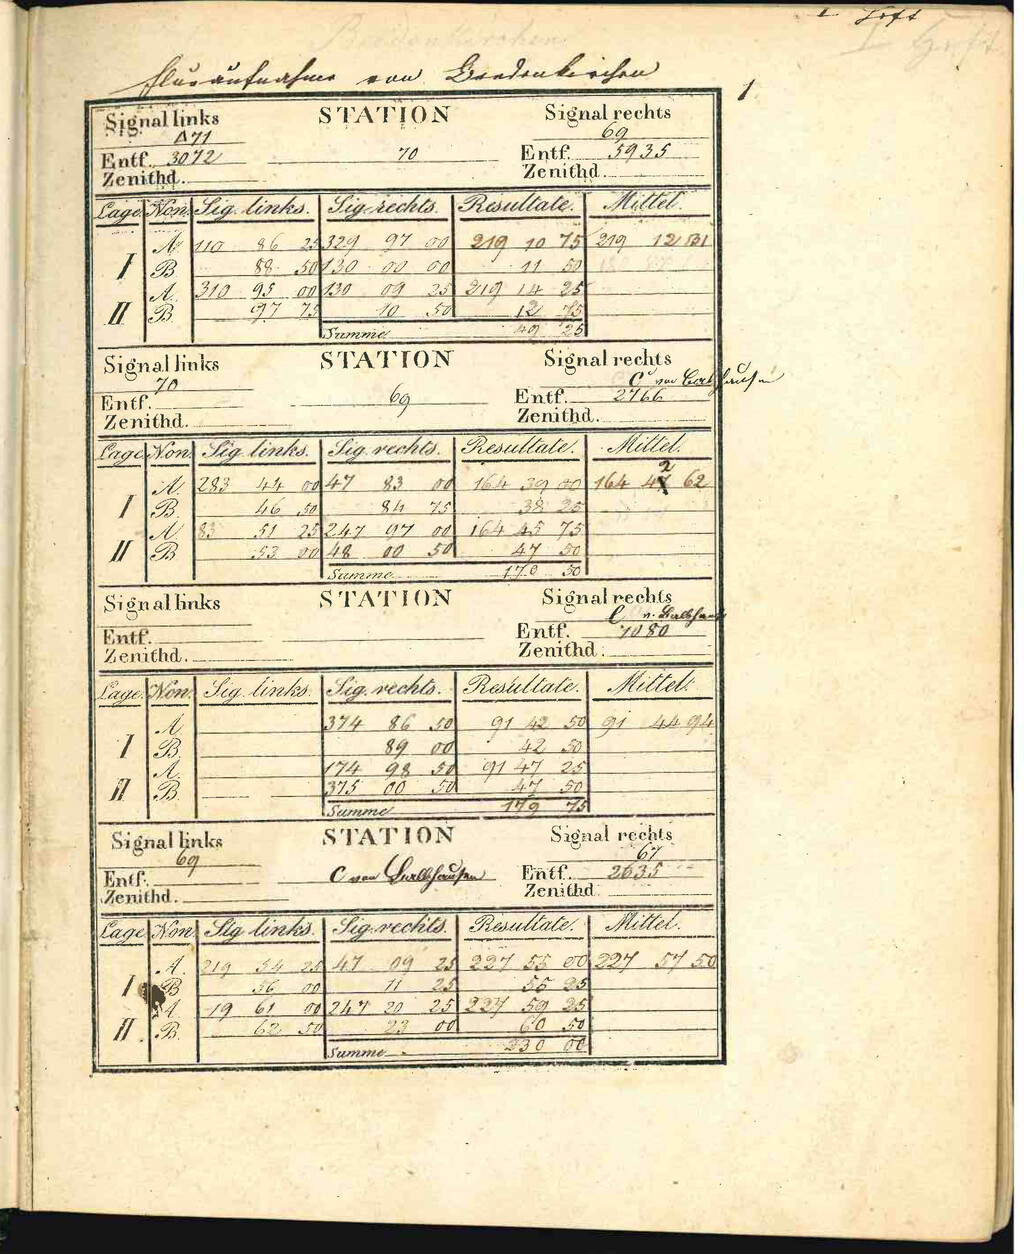 I Heft
Breidenkirchen
I Heft
Fluraufnahme von Breidenkirchen
1
Signal links STATION Signal rechts
Δ71 69
Entf. 3072 70 Entf. 5935
Zenithd. Zenithd.
Lage. Non. Sig. links. Sig. rechts. Resultate. Mittel.
A. 110 86 25 329 97 00 219 10 75 219 12 31
I B 88 50 130 00 00 11 50
A. 310 95 00 130 09 25 219 14 25
II B. 97 75 10 50 12 75
Summe 49 25
Signal links STATION Signal rechts
70 C von
Entf. 69 Entf. 2766
Zenithd. Zenithd.
Lage. Non. Sig. links. Sig. rechts. Resultate. Mittel.
A. 283 44 00 47 83 00 164 39 00 164 42 62
I B. 46 50 84 75 38 25
A 83 51 25 247 97 00 164 45 75
II B 53 00 48 00 50 47 50
Summe 170 50
Signal links STATION Signal rechts
C v.
Entf. Entf. 7080
Zenithd. Zenithd.
Lage. Non. Sig. links. Sig. rechts. Resultate. Mittel.
A 374 86 50 91 42 50 91 44 94
I B. 89 00 42 50
A. 174 98 50 91 47 25
II B. 375 00 50 47 50
Summe 179 75
Signal links STATION Signal rechts
69 67
Entf. C von Entf. 2635
Zenithd. Zenithd.
Lage. Non. Sig. links. Sig. rechts. Resultate. Mittel.
A. 219 54 25 47 09 25 227 55 00 227 57 50
I B 56 00 11 25 55 25
A 19 61 00 247 20 25 227 59 25
II B. 62 50 23 00 60 50
Summe 230 00